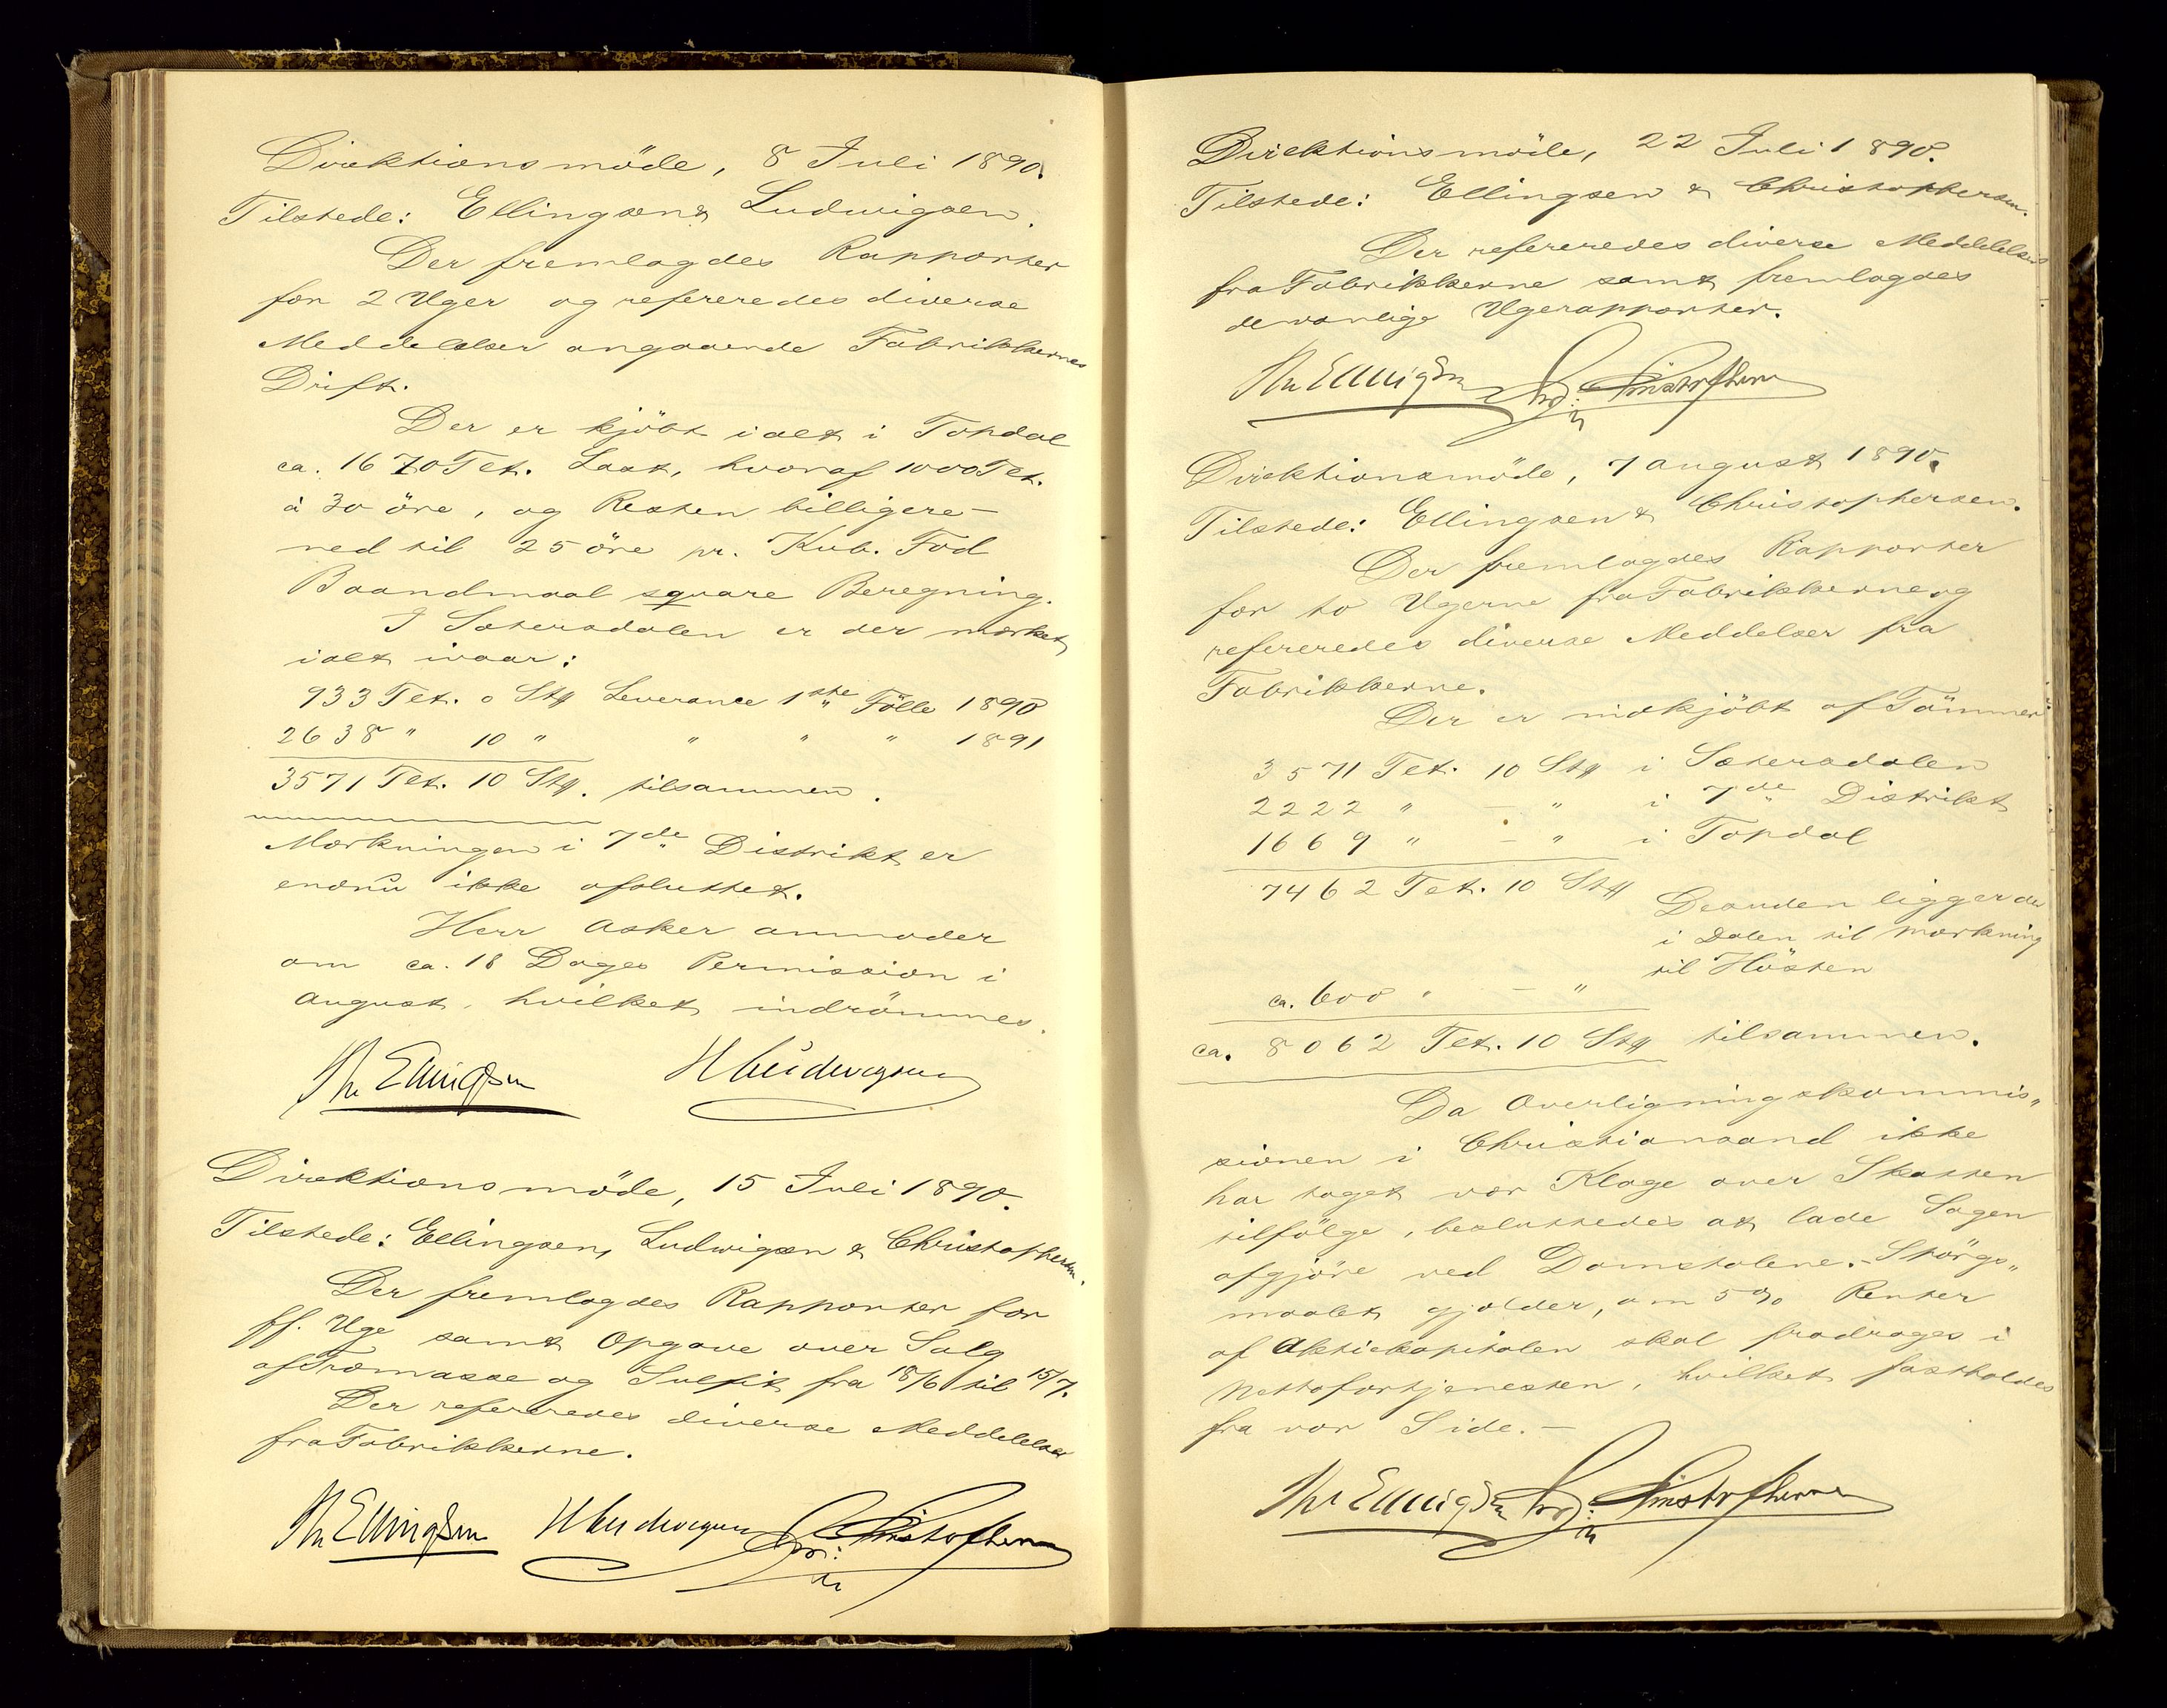 Direktionsmöde, 8 Juli 1890.
Tilstede: Ellingsen & Ludwigsen.
Der fremlagdes Rapporter
for 2 Uger og refereredes diverse
Meddelelser angaaende Fabrikkernes
Drift.
Der er kjöbt ialt i Topdal
ca. 1670 Tct. Last, hvoraf 1000 Tct.
à 30 öre, og Resten billigere –
ned til 25 öre pr. Kub. Fod
Baandmaal square Beregning.
I Sætersdalen er der mærket
ialt ivaar:
933 Tct. 0 Stk Leverance 1ste Fölle 1890
2638 " 10 " " " " 1891
3571 Tct. 10 Stk. tilsammen.
Mærkningen i 7de Distrikt er
endnu ikke afsluttet.
Herr Asker anmoder
om ca. 18 Dages Permission i
August, hvilket indrömmes.
Th Ellingsen H Ludwigsen
Direktionsmöde, 15 Juli 1890.
Tilstede: Ellingsen, Ludwigsen & Christophersen.
Der fremlagdes Rapporter for
ff. Uge samt Opgave over Salg
af Træmasse og Sulfit fra 18/6 til 15/7.
Der refereredes diverse Meddelelser
fra Fabrikkerne.
Th Ellingsen H Ludwigsen Christophersen
Direktionsmöde, 22 Juli 1890.
Tilstede: Ellingsen & Christophersen.
Der refereredes diverse Meddelelser
fra Fabrikkerne samt fremlagdes
de vanlige Ugerapporter.
Th Ellingsen Christophersen
Direktionsmöde, 7 August 1890.
Tilstede: Ellingsen & Christophersen.
Der fremlagdes Rapporter
for to Ugerne fra Fabrikkerne og
refereredes diverse Meddelser fra
Fabrikkerne.
Der er indkjöbt af Tömmer
3571 Tct. 10 Stk i Sætersdalen
2222 " – " i 7de Distrikt
1669 " – " i Topdal
7462 Tct. 10 Stk
Desuden ligger der
i Dalen til Mærkning
til Hösten
ca. 600 " – "
ca. 8062 Tct. 10 Stk tilsammen.
Da Overligningskommis„
sionen i Christianssand ikke
har taget vor Klage over Skatten
tilfölge, besluttedes at lade Sagen
afgjöre ved Domstolene. – Spörgs„
maalet gjælder, om 5% Renter
af Aktiekapitalen skal fradrages i
Nettofortjenesten, hvilket fastholdes
fra vor Side. –
Th Ellingsen Christophersen